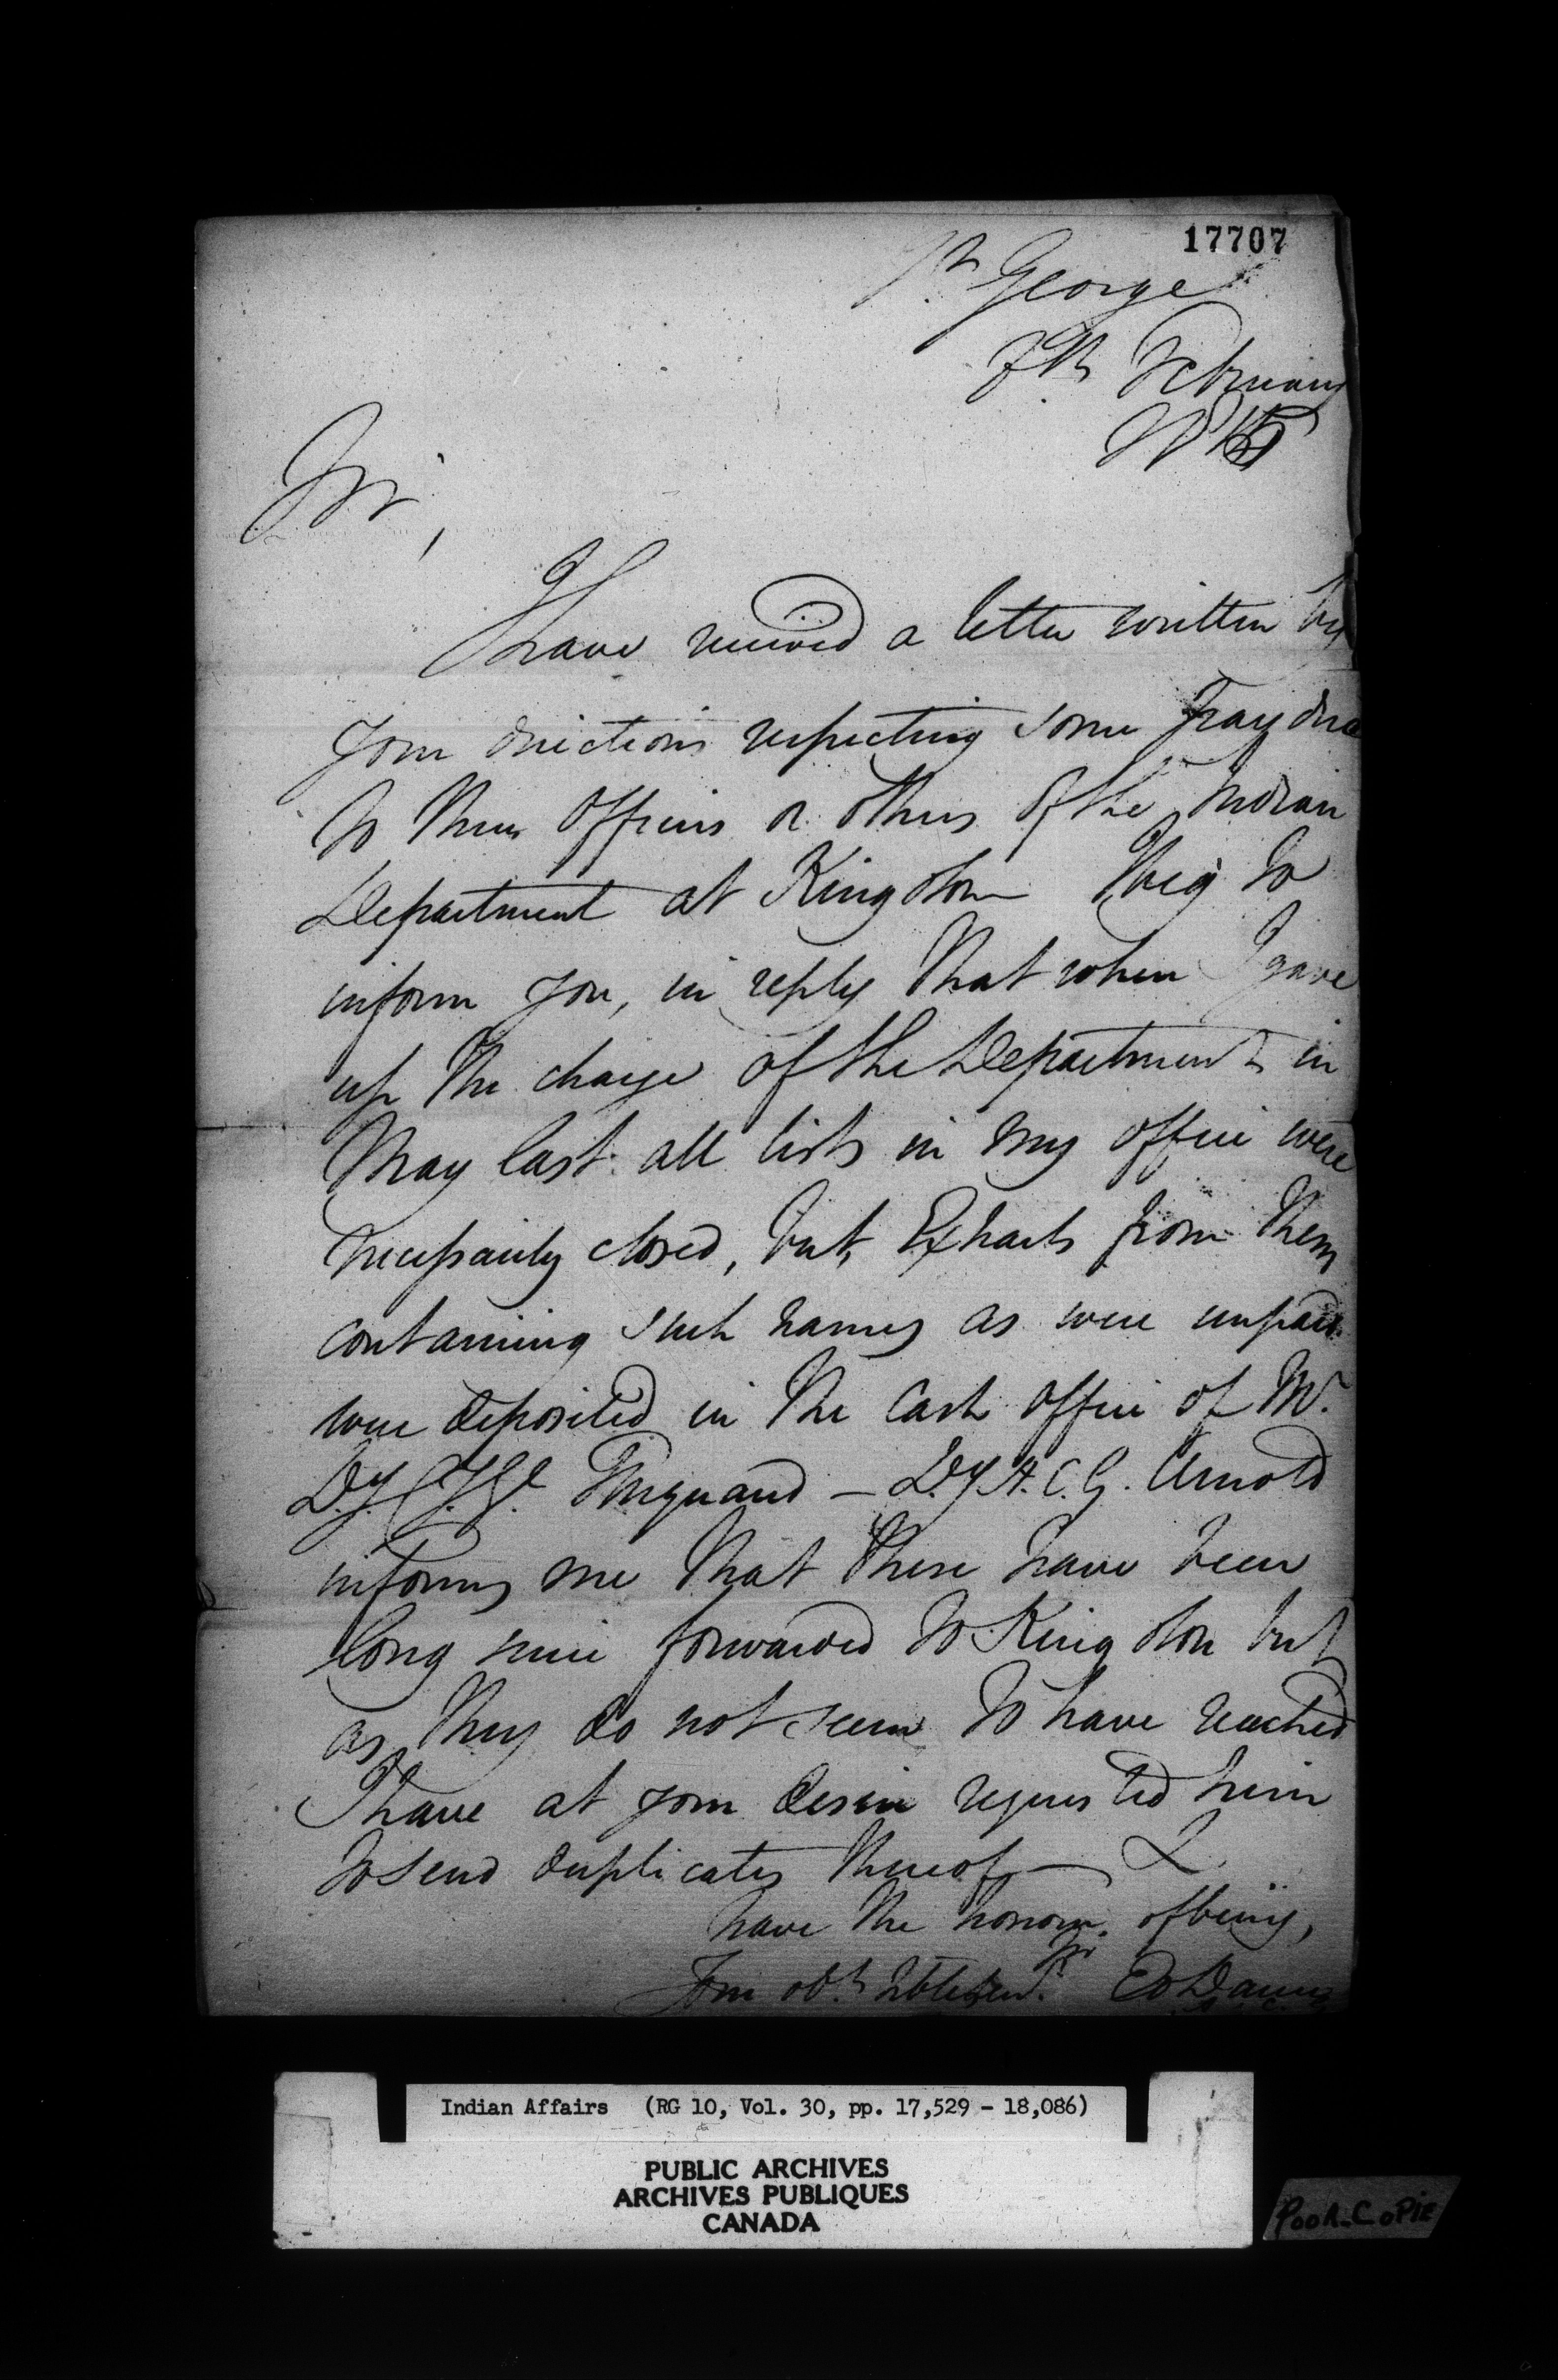 17707
Ft. George
7th February
1815
Sir,
I have received a letter written by
your directions respecting some Pay due
to three Officers or others of the Indian
Department at Kingston I beg to
inform you, in reply that when I gave
up the charge of the Department in
May last all lists in my office were
necessarily closed, but, Extracts from them
containing such names as were unpaid
were deposited in the Cash Office of Mr.
Dy C. Gl. Turquand — Dy A. C. G. Arnold
informs me that these have been
long since forwarded to Kingston but
as they do not seem to have reached
I have at your desire requested him
to send duplicates thereof — I
have the honour. of being,
Sir
Your obt. hble Servt. Ed
Indian Affairs (RG 10, Vol. 30, pp. 17,529 - 18,086)
PUBLIC ARCHIVES
ARCHIVES PUBLIQUES
CANADA
POOR-COPIE